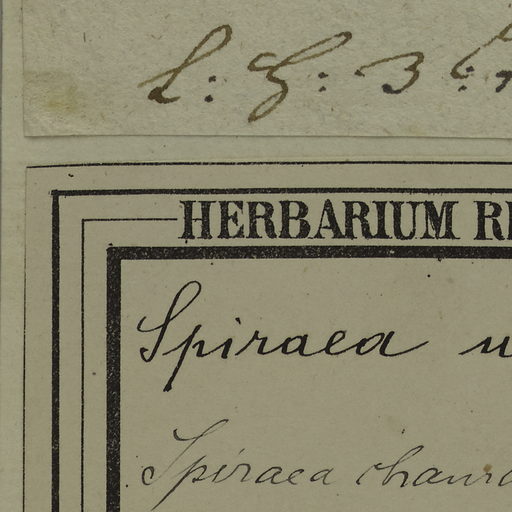 L: G: 3
HERBARIUM R
Spiraea u
Spiraea cham